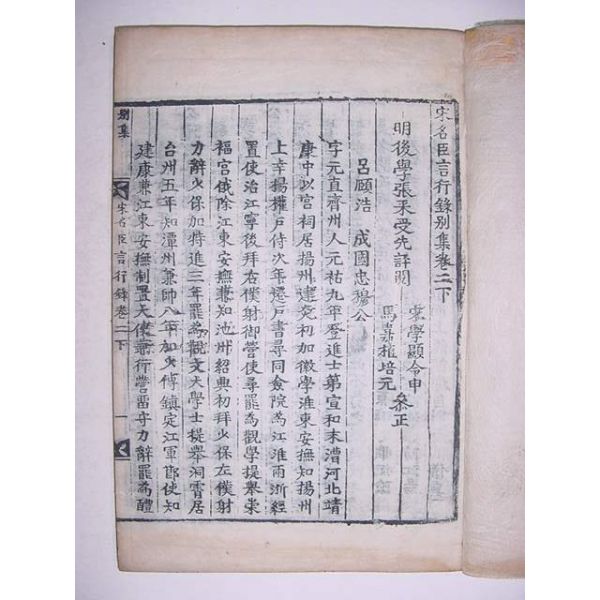 宋名臣言行錄別集卷二下
明後學張采受先評閱
宋學顯令申
馬嘉植培元
叅正
呂頤浩 成國忠穆公
字元直齊州人元祐九年登進士第宣和末漕河北靖
康中以宮祠居揚州建炎初加徽學淮東安撫知揚州
上幸揚權戶侍次年遷戶書尋同僉院為江淮兩浙經
置使治江寧後拜右僕射御營使尋罷為觀學提舉崇
福宮俄除江東安撫兼知池州紹興初拜少保左僕射
力辭少保加特進三年罷為觀文大學士提舉洞霄居
台州五年知潭州兼帥八年加少傅鎮定江軍節使知
建康兼江東安撫制置大使兼行營留守力辭罷為醴
別集
宋名臣言行錄卷二下
一